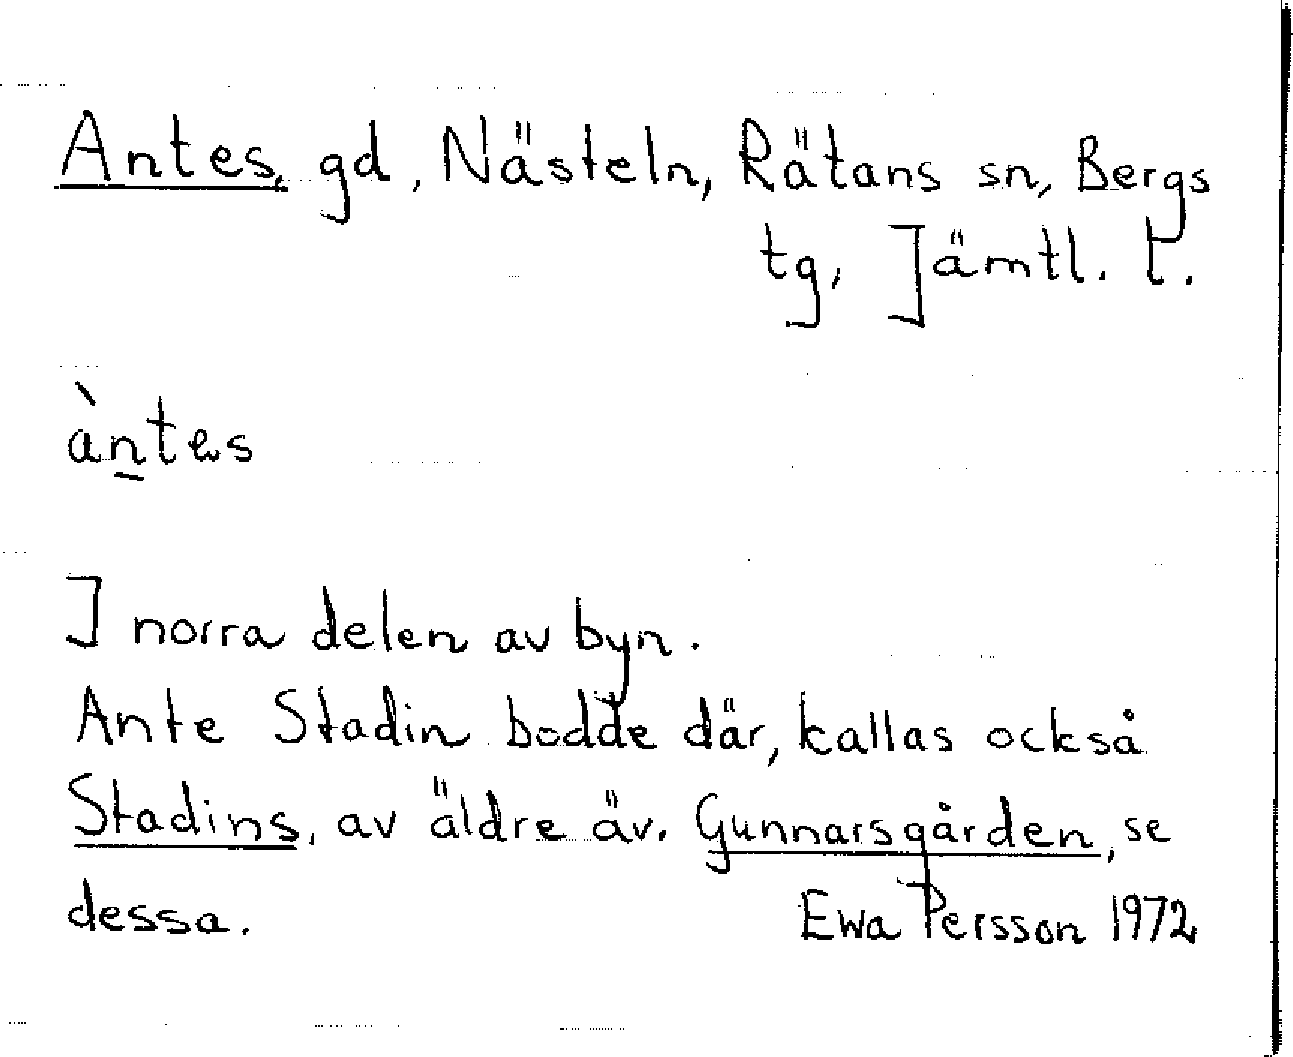 Antes, gd, Nästeln, Rätans sn, Bergs
tg, Jämtl. l.
àn̲tes
I norra delen av byn.
Ante Stadin bodde där, kallas också
Stadins, av äldre äv. Gunnarsgården, se
dessa.
Ewa Persson 1972